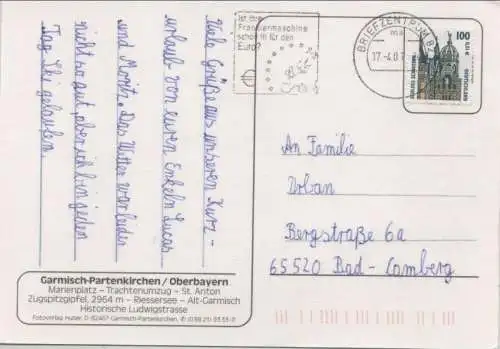 Viele Grüße aus unserem Kurz-
urlaub von euren Enkeln Lucas
und Moritz. Das Wetter war leider
nicht so gut, aber ich bin jeden
Tag Ski gelaufen.
Ist Ihre
Frankiermaschine
schon fit für den
Euro?
BRIEFZENTRUM 82
100
DEUTSCHLAND
An Familie
Urban
Bergstraße 6a
65520 Bad-Camberg
Garmisch-Partenkirchen/Oberbayern
Marienplatz – Trachtenumzug – St. Anton
Zugspitzgipfel, 2964 m – Riessersee – Alt-Garmisch
Historische Ludwigstrasse
Fotoverlag Huber, D-82467 Garmisch-Partenkirchen,